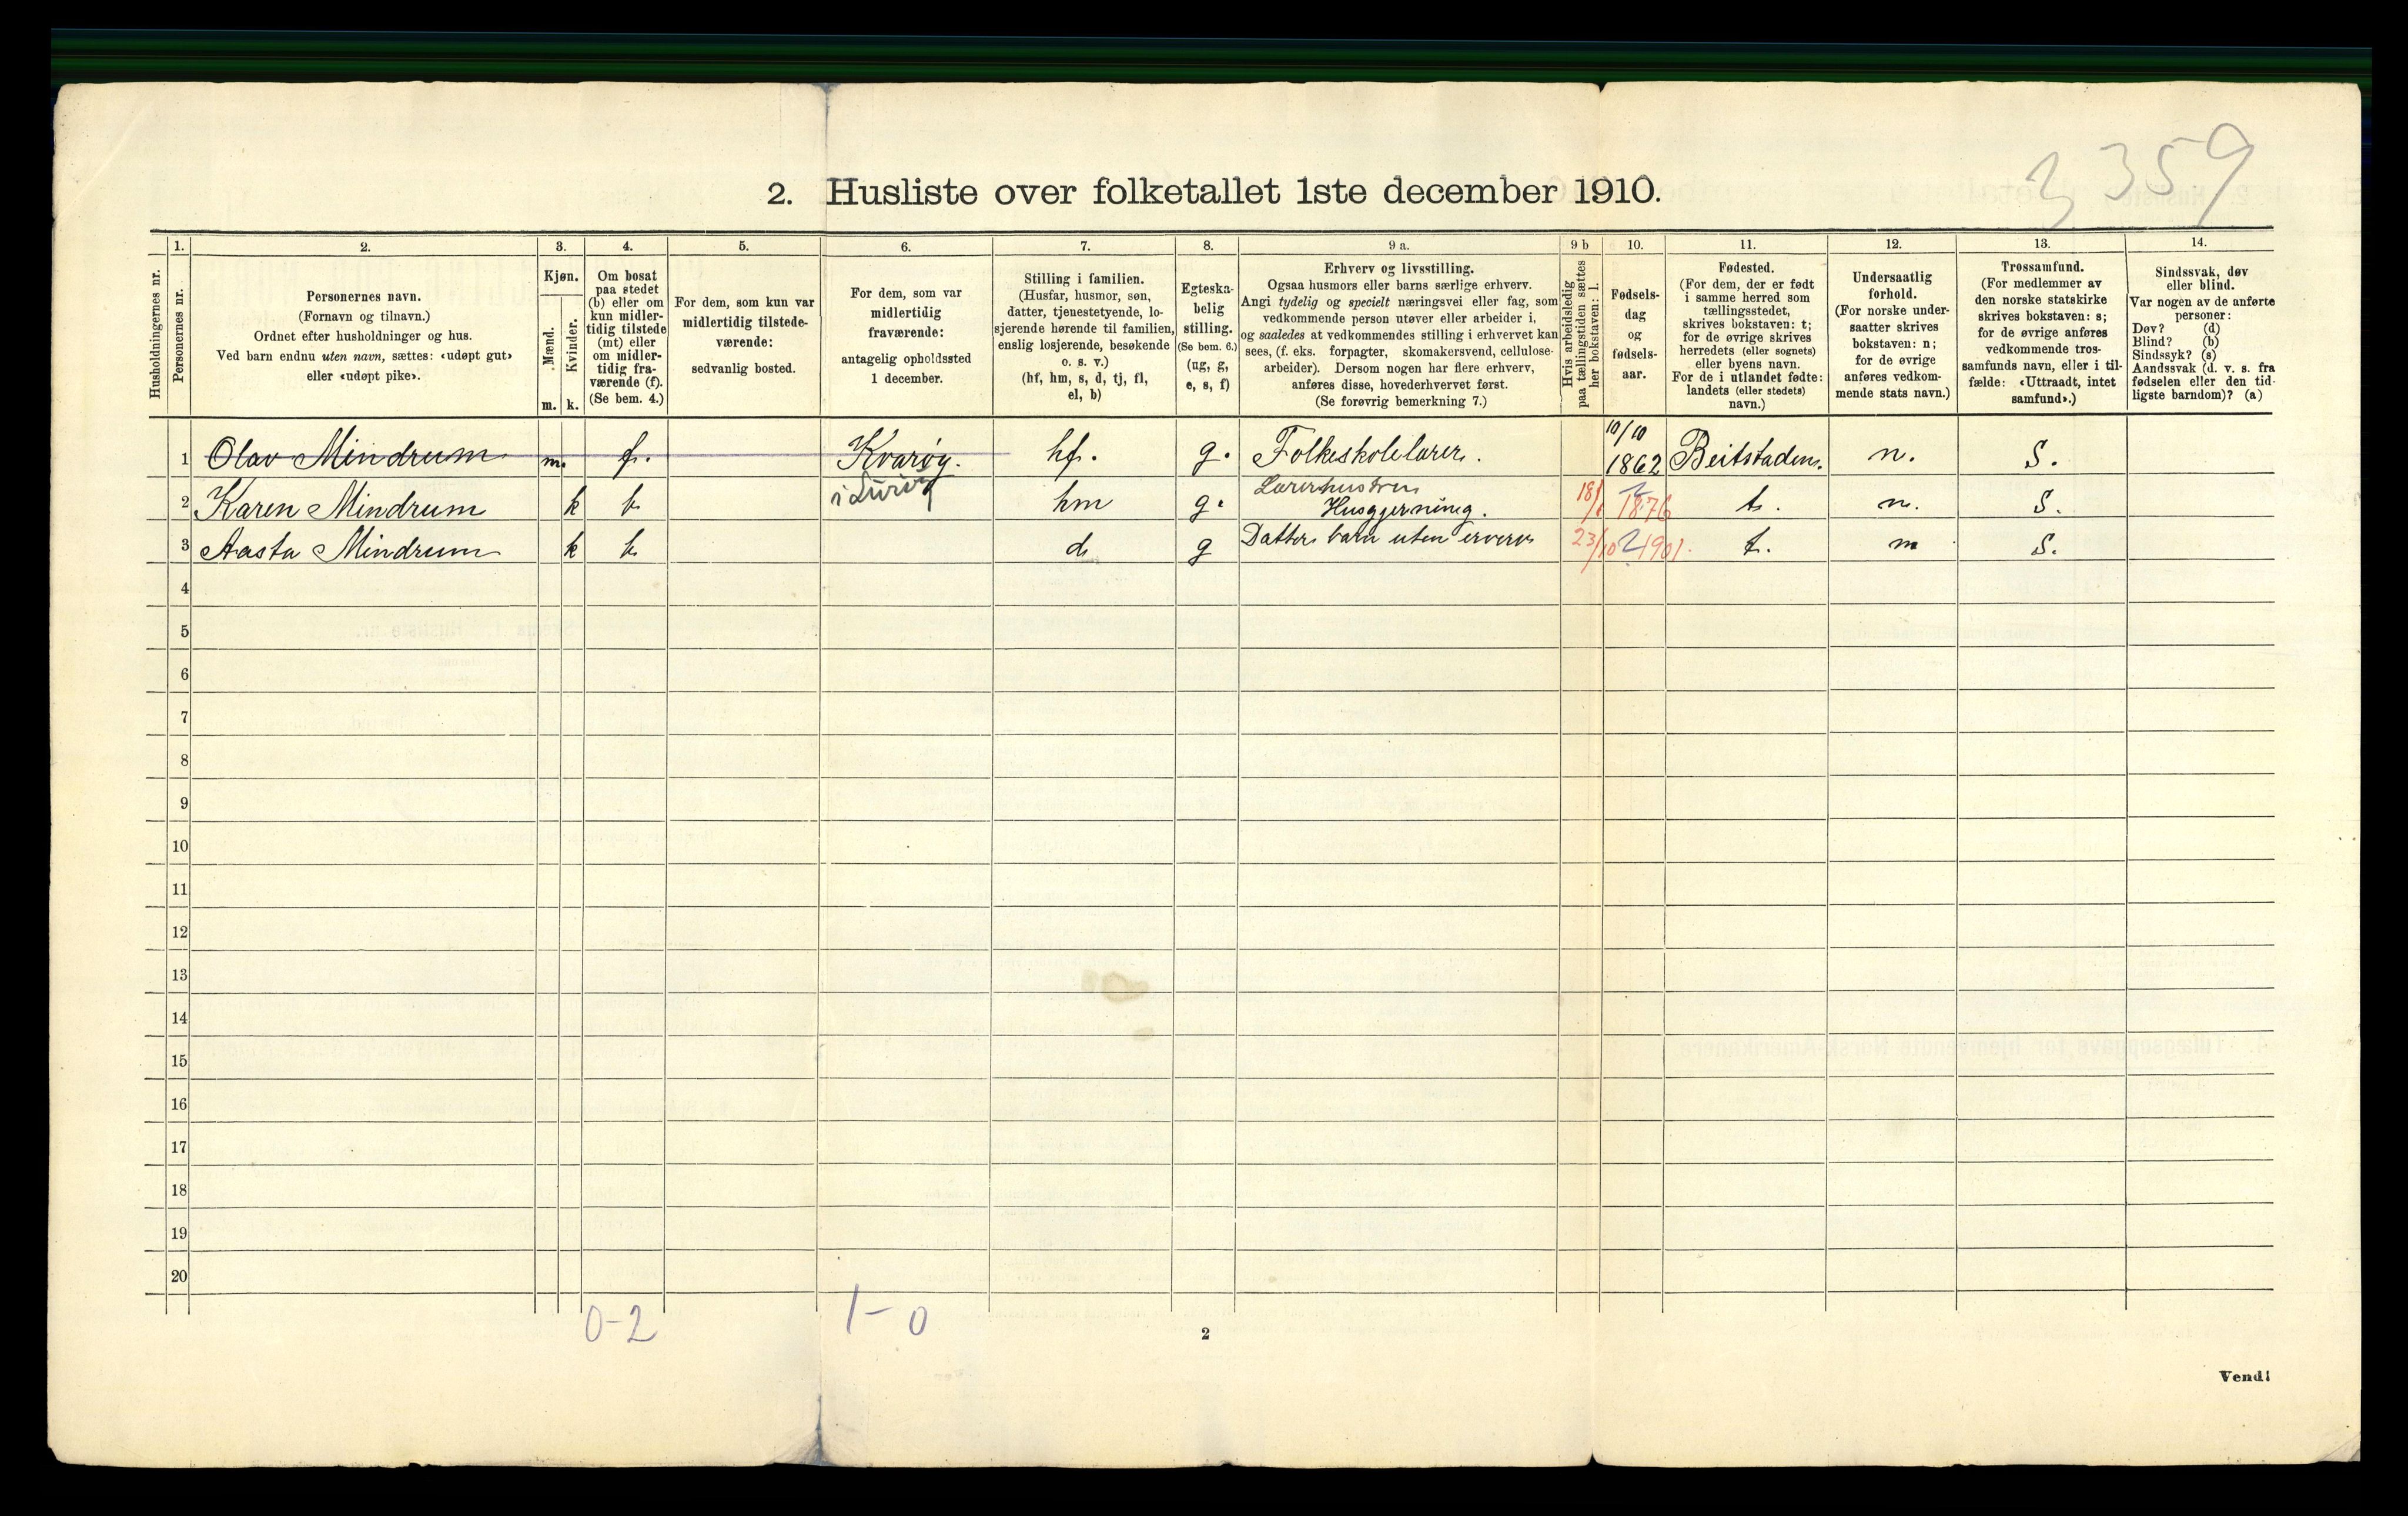 3 359
2. Husliste over folketallet 1ste december 1910.
Husholdningernes nr.
1. Personernes nr.
2. Personernes navn.
(Fornavn og tilnavn.)
Ordnet efter husholdninger og hus.
Ved barn endnu uten navn, sættes: «udøpt gut»
eller «udøpt pike».
3. Kjøn.
Mænd. m.
Kvinder. k.
4. Om bosat
paa stedet
(b) eller om
kun midler-
tidig tilstede
(mt) eller
om midler-
tidig fra-
værende (f).
(Se bem. 4.)
5. For dem, som kun var
midlertidig tilstede-
værende:
sedvanlig bosted.
6. For dem, som var
midlertidig
fraværende:
antagelig opholdssted
1 december.
7. Stilling i familien.
(Husfar, husmor, søn,
datter, tjenestetyende, lo-
sjerende hørende til familien,
enslig losjerende, besøkende
o. s. v.)
(hf, hm, s, d, tj, fl,
el, b)
8. Egteska-
belig
stilling.
(Se bem. 6.)
(ug, g,
e, s, f)
9 a. Erhverv og livsstilling.
Ogsaa husmors eller barns særlige erhverv.
Angi tydelig og specielt næringsvei eller fag, som
vedkommende person utøver eller arbeider i,
og saaledes at vedkommendes stilling i erhvervet kan
sees, (f. eks. forpagter, skomakersvend, cellulose-
arbeider). Dersom nogen har flere erhverv,
anføres disse, hovederhvervet først.
(Se forøvrig bemerkning 7.)
9 b Hvis arbeidsledig
paa tællingstiden sættes
her bokstaven: l.
10. Fødsels-
dag
og
fødsels-
aar.
11. Fødested.
(For dem, der er født
i samme herred som
tællingsstedet,
skrives bokstaven: t;
for de øvrige skrives
herredets (eller sognets)
eller byens navn.
For de i utlandet fødte:
landets (eller stedets)
navn.)
12. Undersaatlig
forhold.
(For norske under-
saatter skrives
bokstaven: n;
for de øvrige
anføres vedkom-
mende stats navn.)
13. Trossamfund.
(For medlemmer av
den norske statskirke
skrives bokstaven: s;
for de øvrige anføres
vedkommende tros-
samfunds navn, eller i til-
fælde: «Uttraadt, intet
samfund».)
14. Sindssvak, døv
eller blind.
Var nogen av de anførte
personer:
Døv? (d)
Blind? (b)
Sindssyk? (s)
Aandssvak (d. v. s. fra
fødselen eller den tid-
ligste barndom)? (a)
1 Olav Mindrum m. f. Kvarøy. hf. g. Folkeskolelærer. 10/10 1862 Beitstaden. n. S.
i Lurøy
2 Karen Mindrum k b hm g. Lærerhustru Husgjerning. 18/1 1876 t. n. S.
3 Aasta Mindrum k b d g Datter barn uten erverv 23/10 2 1901. t. n S.
4
5
6
7
8
9
10
11
12
13
14
15
16
17
18
19
20
0-2 1-0
2
Vend!